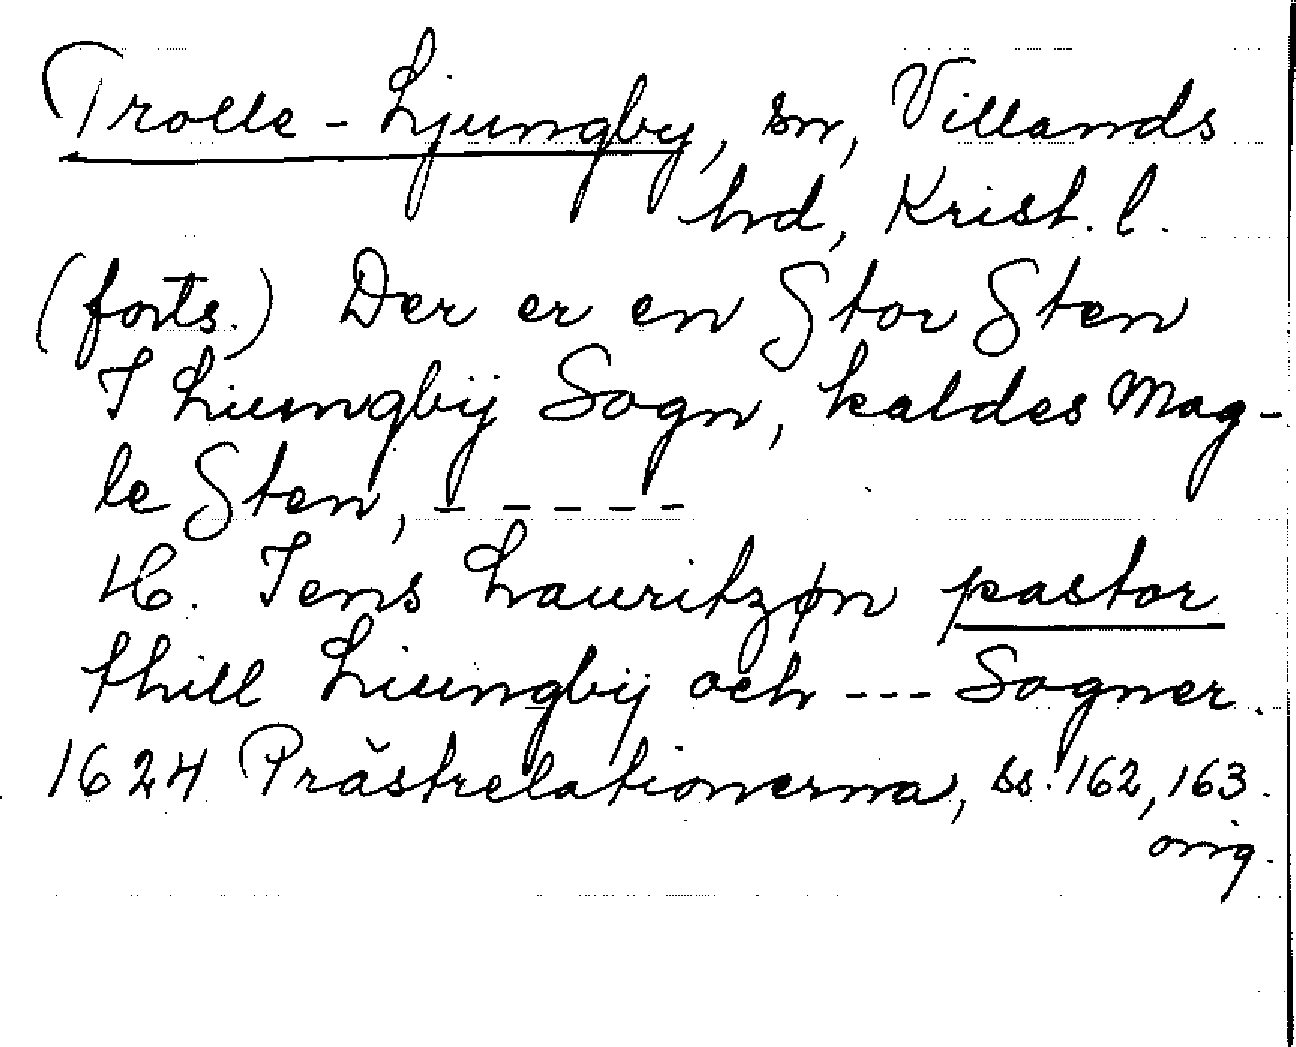 Trolle-Ljungby, sn, Villands
hd, Krist. l.
(forts.) Der er en Stor Sten
I Liungbÿ Sogn, kaldes Mag-
le Sten, - - - - -
H. Jens Lauritzøn pastor
thill Liungbÿ och --- Sogner.
1624 Prästrelationerna, ss. 162, 163.
orig.